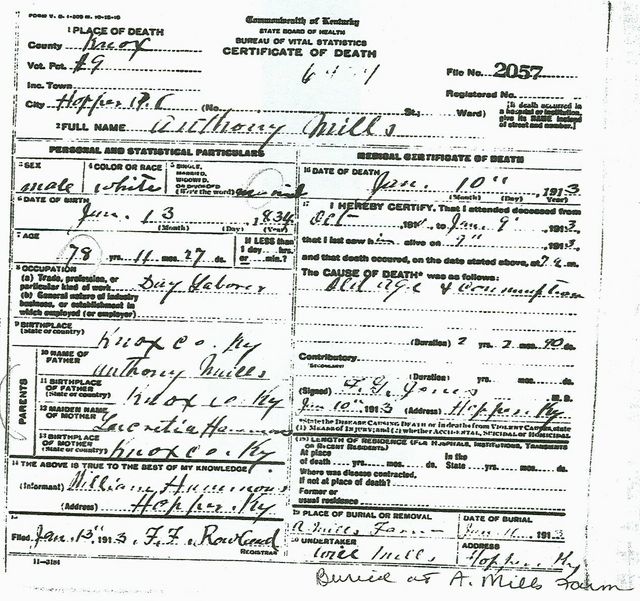 FORM V. S. 1-
Commonwealth of Kentucky
STATE BOARD OF HEALTH
BUREAU OF VITAL STATISTICS
CERTIFICATE OF DEATH
1 PLACE OF DEATH
County Knox
Vot. Pct. 19
Inc. Town
City Hopper (No. St.; Ward)
File No. 2057
Registered No.
[If death occurred in a hospital or institution, give its NAME instead of street and number.]
2 FULL NAME Anthony Mills
PERSONAL AND STATISTICAL PARTICULARS
3 SEX male
4 COLOR OR RACE white
5 SINGLE, MARRIED, WIDOWED, OR DIVORCED (Write the word)
6 DATE OF BIRTH Jan. 13 1834
(Month) (Day) (Year)
7 AGE 78 yrs. 11 mos. 27 ds.
If LESS than 1 day, hrs. or min.?
8 OCCUPATION
(a) Trade, profession, or particular kind of work Day Laborer
(b) General nature of industry business, or establishment in which employed (or employer)
9 BIRTHPLACE (State or country) Knox Co. Ky
PARENTS
10 NAME OF FATHER Anthony Mills
11 BIRTHPLACE OF FATHER (State or country) Knox Co. Ky
12 MAIDEN NAME OF MOTHER Lucretia Hammons
13 BIRTHPLACE OF MOTHER (State or country) Knox Co. Ky
14 THE ABOVE IS TRUE TO THE BEST OF MY KNOWLEDGE
(Informant) William Hammons
(Address) Hopper, Ky
Filed Jan. 13" 1913 F. F. Rowland
REGISTRAR
11-3184
MEDICAL CERTIFICATE OF DEATH
16 DATE OF DEATH Jan. 10" 1913
(Month) (Day) (Year)
17 I HEREBY CERTIFY, That I attended deceased from
Oct 191 to Jan. 9" 1913
that I last saw him alive on 9" 1913
and that death occured, on the date stated above, at 7 a m.
The CAUSE OF DEATH* was as follows:
Old Age & Consumption
(Duration) 2 yrs. 2 mos. ds.
Contributory
SECONDARY
(Duration) yrs. mos. ds.
(Signed) F. G. Jones M. D.
Jan 10" 1913 (Address) Hopper, Ky.
*State the DISEASE CAUSING DEATH or in deaths from VIOLENT CAUSES, state (1) MEANS OF INJURY; and (2) whether ACCIDENTAL, SUICIDAL or HOMICIDAL
18 LENGTH OF RESIDENCE (FOR HOSPITALS, INSTITUTIONS, TRANSIENTS OR RECENT RESIDENTS)
At place of death yrs. mos. ds. In the State yrs. mos. ds.
Where was disease contracted, if not at place of death?
Former or usual residence
19 PLACE OF BURIAL OR REMOVAL A. Mills Farm
DATE OF BURIAL Jan 11 1913
20 UNDERTAKER Will Mills
ADDRESS Hopper, Ky
Buried at A. Mills Farm